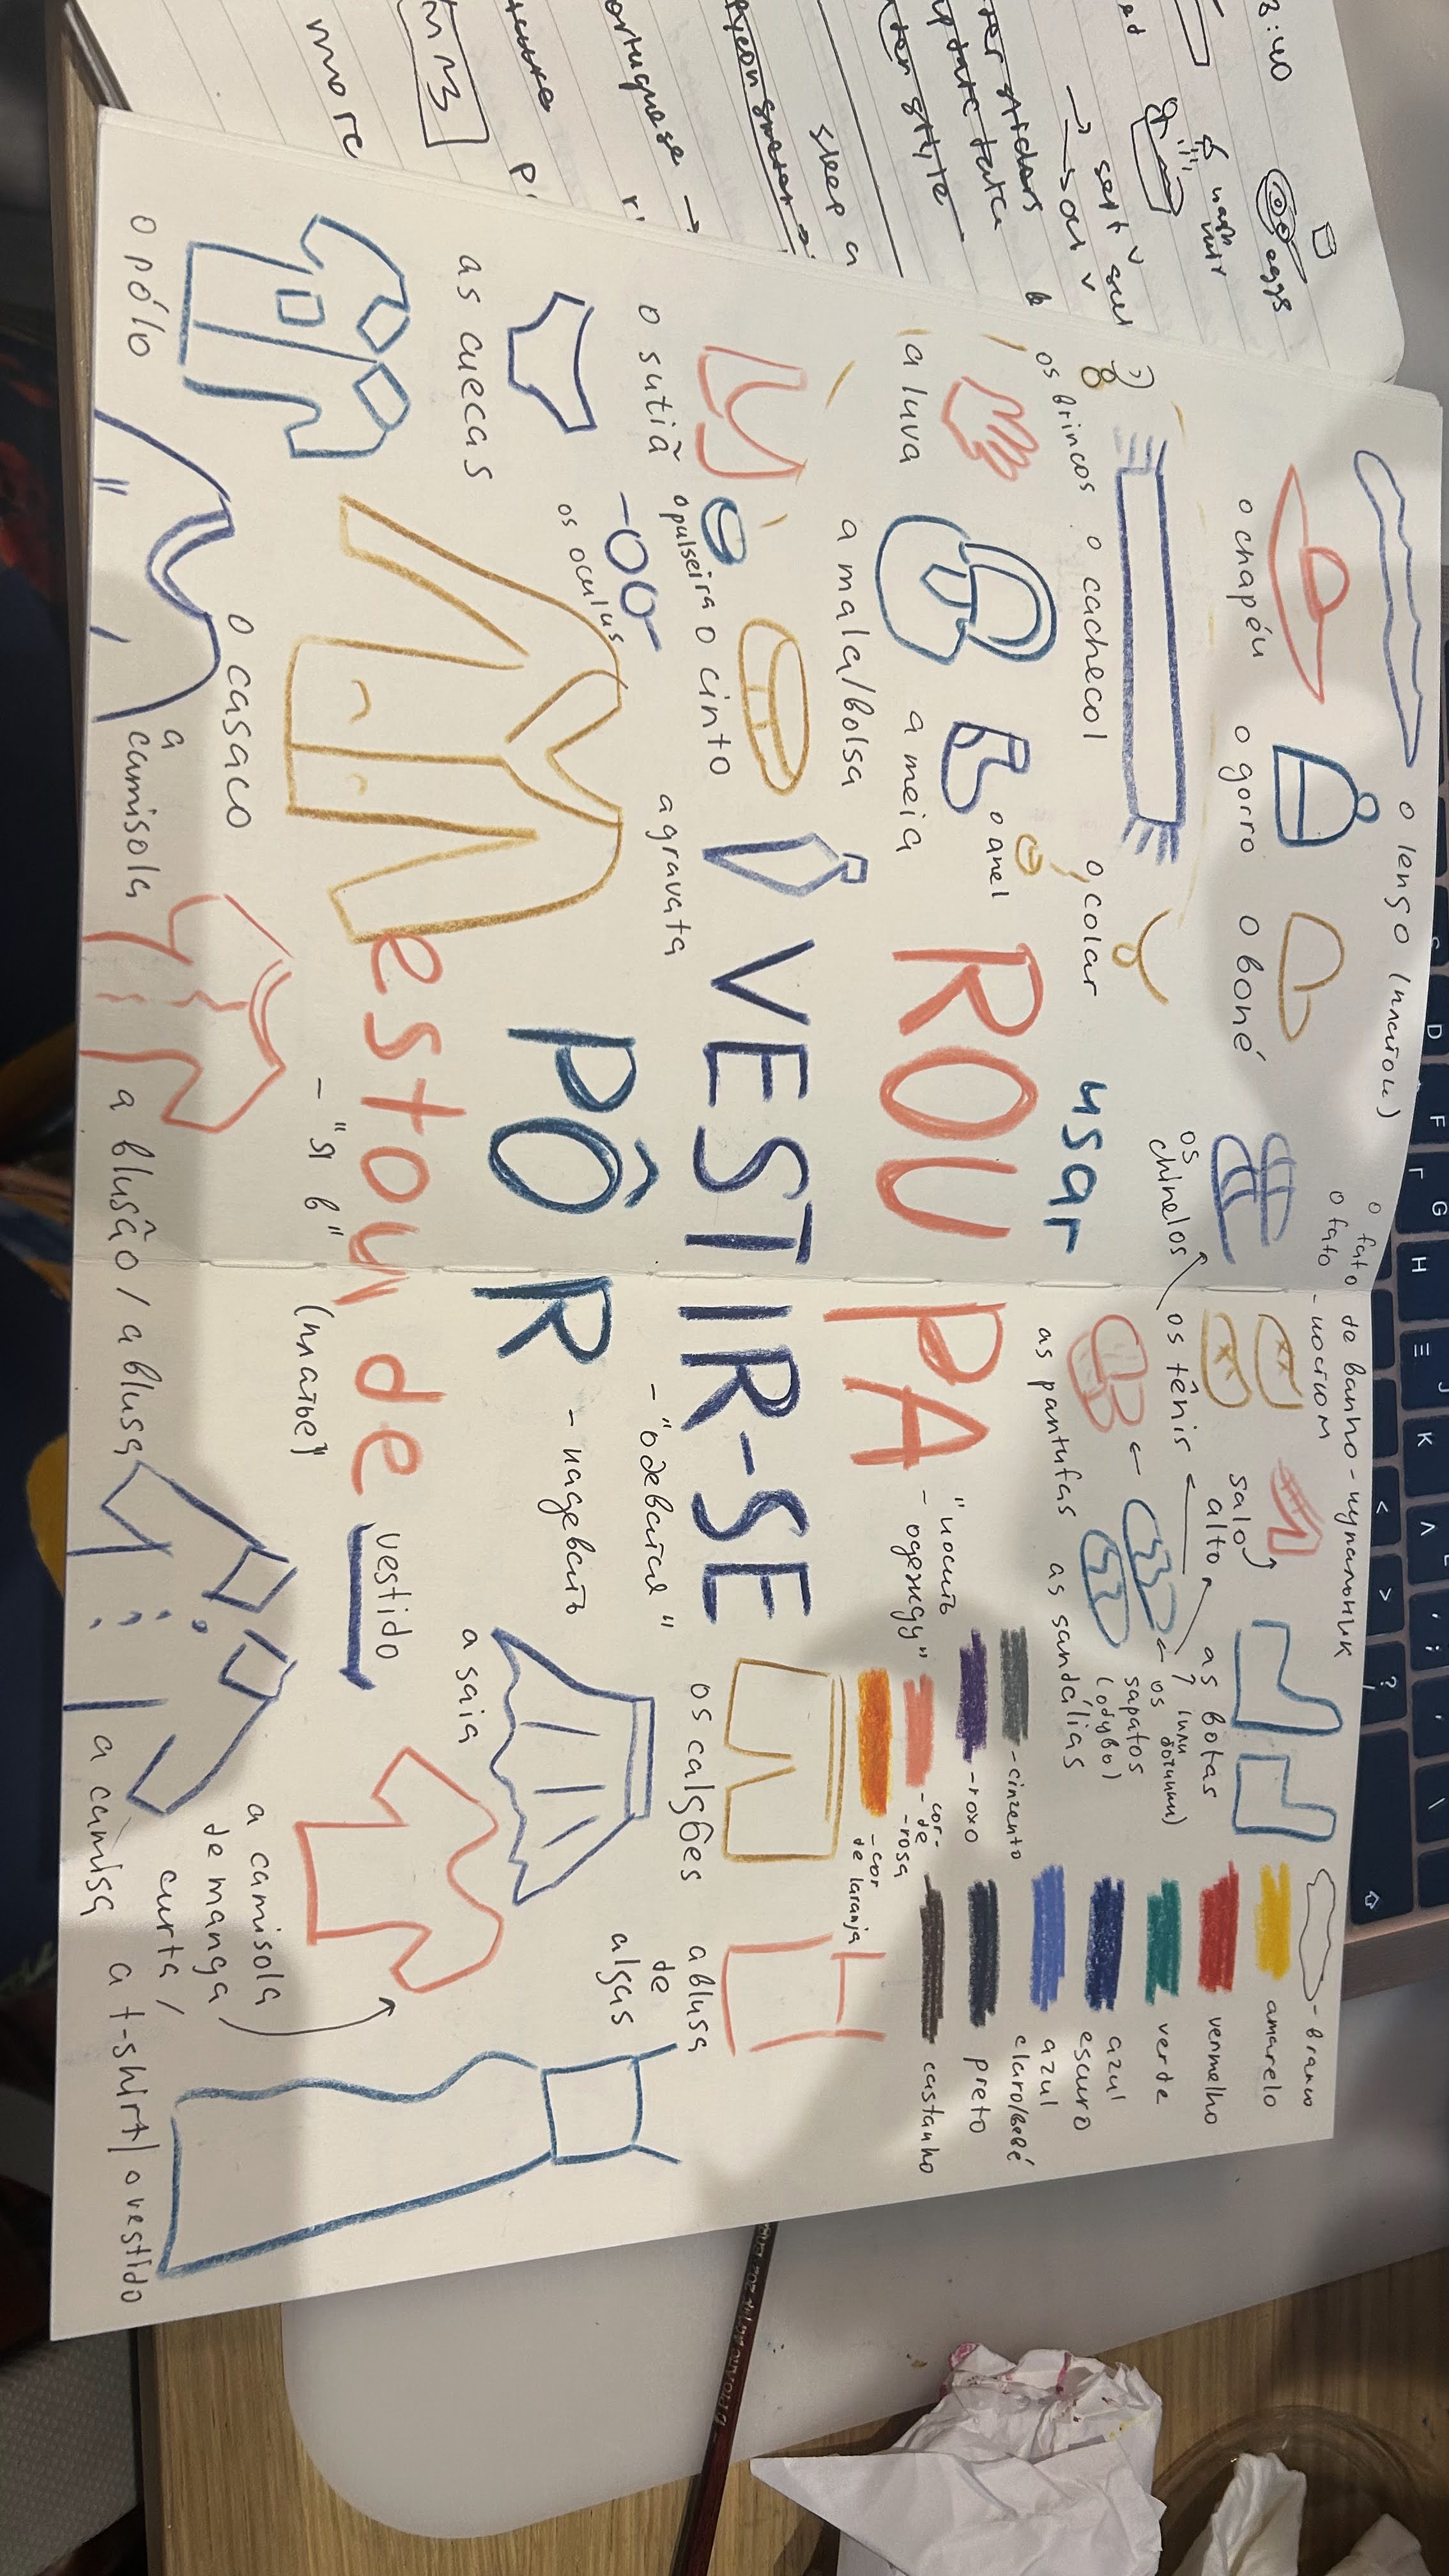 o lenço (платок)
o chapéu
o gorro
o boné
os chinelos
o fato de banho - купальник
o fato - костюм
os tênis
salo
alto
as botas
(или ботинки)
os
sapatos
(обувь)
as pantufas
as sandálias
- branco
amarelo
vermelho
verde
azul
escuro
azul
claro/bebé
preto
castanho
- cinzento
- roxo
- cor-
de
-rosa
- cor
de laranja
os brincos
o cachecol
o colar
o anel
usar
"носить
a luva
a mala/bolsa
a meia
ROUPA
- одежду"
o sutiã
o pulseira
o cinto
a gravata
VESTIR-SE
- "одеваться"
os calções
a blusa
de
alças
as cuecas
os oculus
PÔR
- надевать
a saia
estou de
vestido
- "я в"
(платье)
o pólo
o casaco
a
camisola
a blusão / a blusa
a camisa
a camisola
de manga
curta/
a t-shirt/
o vestido
8:40
eggs
sleep a
ortuguese →
more
D
F
G
H
J
K